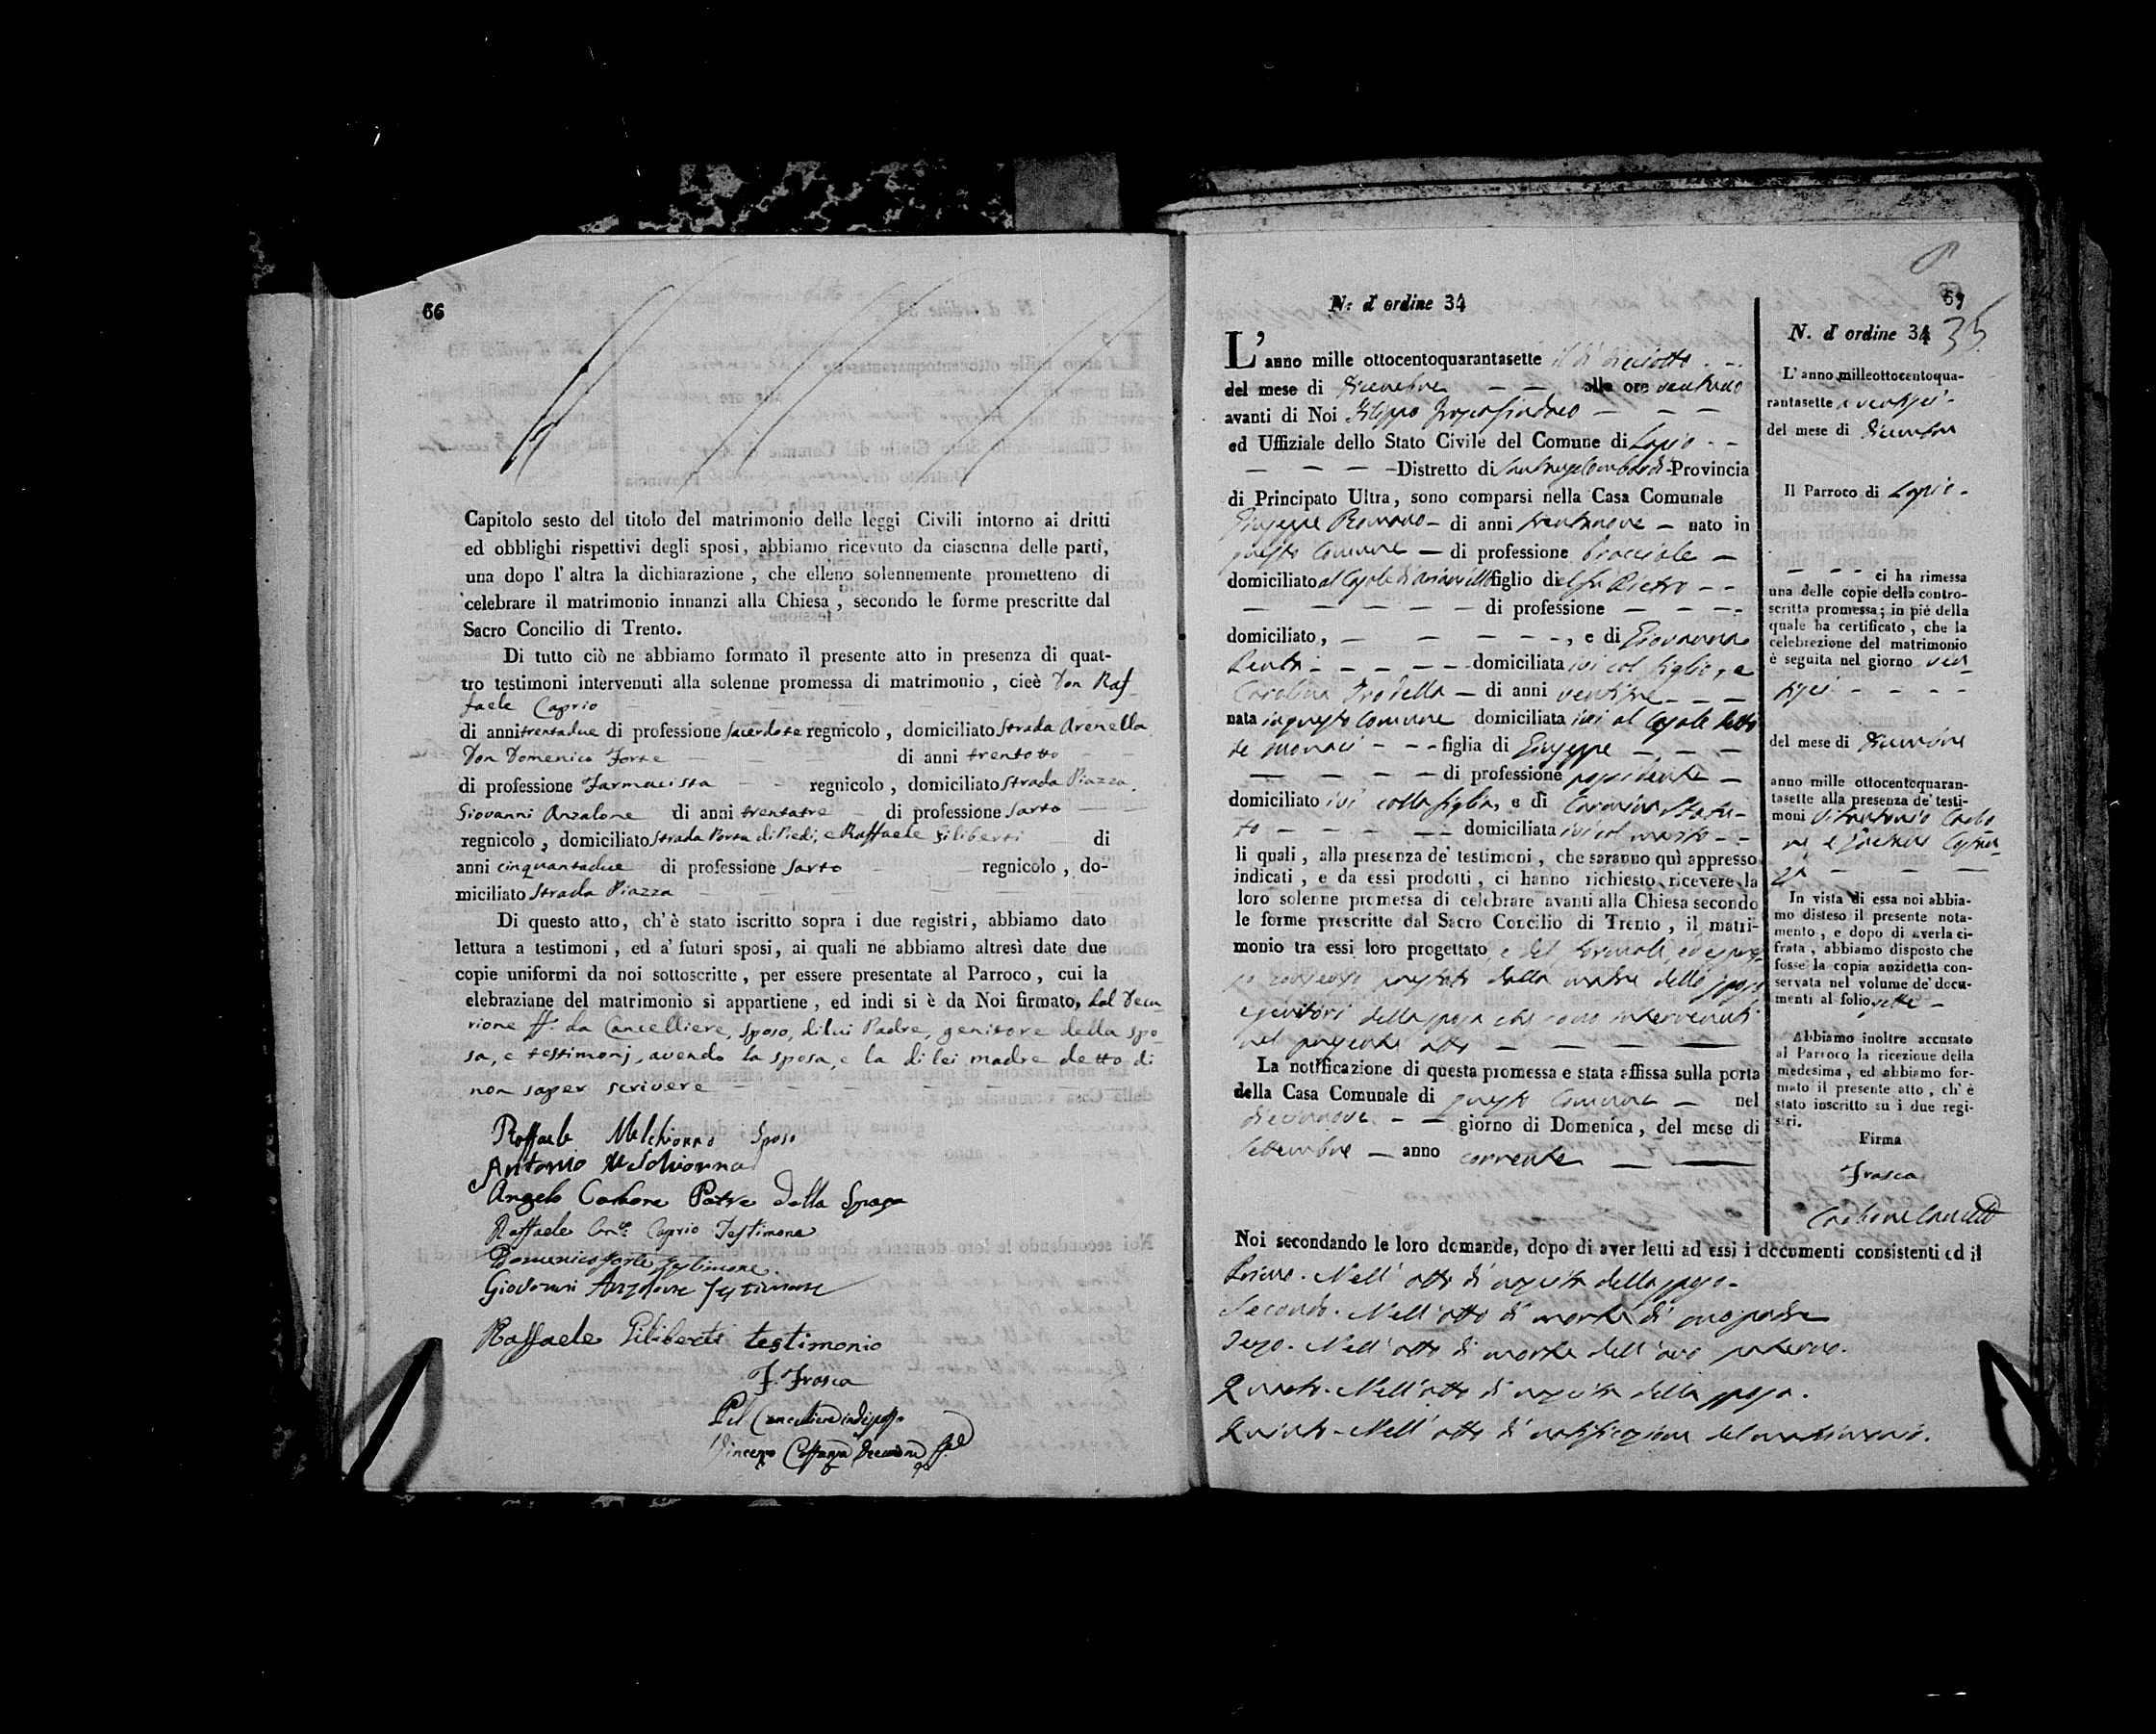 66
Capitolo sesto del titolo del matrimonio delle leggi Civili intorno ai dritti
ed obblighi rispettivi degli sposi, abbiamo ricevuto da ciascuna delle parti,
una dopo l'altra la dichiarazione, che elleno solennemente prometteno di
celebrare il matrimonio innanzi alla Chiesa, secondo le forme prescritte dal
Sacro Concilio di Trento.
Di tutto ciò ne abbiamo formato il presente atto in presenza di quat-
tro testimoni intervenuti alla solenne promessa di matrimonio, cioè Don Raf-
faele Caprio
di anni trentadue di professione sacerdote regnicolo, domiciliato Strada Arenella
Don Domenico Forte di anni trentotto
di professione Farmacista regnicolo, domiciliato Strada Piazza.
Giovanni Anzalone di anni trentatre di professione Sarto
regnicolo, domiciliato Strada Porta di Piedi, e Raffaele Filiberti di
anni cinquantadue di professione Sarto regnicolo, do-
miciliato Strada Piazza
Di questo atto, ch'è stato iscritto sopra i due registri, abbiamo dato
lettura a testimoni, ed a' futuri sposi, ai quali ne abbiamo altresì date due
copie uniformi da noi sottoscritte, per essere presentate al Parroco, cui la
elebraziane del matrimonio si appartiene, ed indi si è da Noi firmato, dal Decu-
rione ff. da Cancelliere, sposo, di lui Padre, genitore della spo-
sa, e testimonj, avendo la sposa, e la di lei madre detto di
non saper scrivere
Raffaele Melchionno Sposo
Antonio Melchionna
Angelo Carbone Patre della Sposa
Raffaele Caprio Testimone
Domenico Forte testimone.
Giovanni Anzalone Testimone
Raffaele Filiberti testimonio
F. Frasca
Pel Cancelliere indisposto
Vincenzo Decurione ff.
N: d'ordine 34
L'anno mille ottocentoquarantasette il dì diciotto
del mese di Dicembre alle ore
avanti di Noi Filippo Frasca Sindaco
ed Uffiziale dello Stato Civile del Comune di Lapio
Distretto di Santangelo Lombardi Provincia
di Principato Ultra, sono comparsi nella Casa Comunale
Giuseppe Romano di anni trentanove nato in
questo Comune di professione bracciale
domiciliato al Casale di figlio del fu Pietro
di professione
domiciliato, , e di Giovanna
domiciliata ivi col figlio, e
Carolina di anni
nata in questo Comune domiciliata ivi al Casale detto
de Monaci figlia di Giuseppe
di professione possidente
domiciliato ivi colla figlia, e di
domiciliata ivi col marito
li quali, alla presenza de' testimoni, che saranno quì appresso
indicati, e da essi prodotti, ci hanno richiesto ricevere la
loro solenne promessa di celebrare avanti alla Chiesa secondo
le forme prescritte dal Sacro Concilio di Trento, il matri-
monio tra essi loro progettato, e del formale, ed espres-
so consenso prestato dalla madre dello sposo
e genitori della sposa che sono intervenuti
nel presente atto
La notificazione di questa promessa e stata affissa sulla porta
della Casa Comunale di questo Comune nel
diciannove giorno di Domenica, del mese di
Settembre anno corrente
Noi secondando le loro domande, dopo di aver letti ad essi i documenti consistenti ed il
Primo. Nell'atto di nascita dello sposo.
Secondo. Nell'atto di morte di suo padre
Terzo. Nell'atto di morte dell'avo paterno.
Quarto. Nell'atto di nascita della sposa.
Quinto. Nell'atto di notificazione del matrimonio.
35
N. d'ordine 34
L'anno milleottocentoqua-
rantasette a ventisei
del mese di Dicembre
Il Parroco di Lapio
ci ha rimessa
una delle copie della contro-
scritta promessa; in piè della
quale ha certificato, che la
celebrezione del matrimonio
è seguita nel giorno ven
tisei
del mese di Dicembre
anno mille ottocentoquaran-
tasette alla presenza de' testi-
moni Vitantonio Carbo
ne e
In vista di essa noi abbia-
mo disteso il presente nota-
mento, e dopo di averla ci-
frata, abbiamo disposto che
fosse la copia anzidetta con-
servata nel volume de' docu-
menti al folio sette
Abbiamo inoltre accusato
al Parroco la ricezione della
medesima, ed abbiamo for-
mato il presente atto, ch'è
stato inscritto su i due regi-
stri.
Firma
Frasca
Carbone